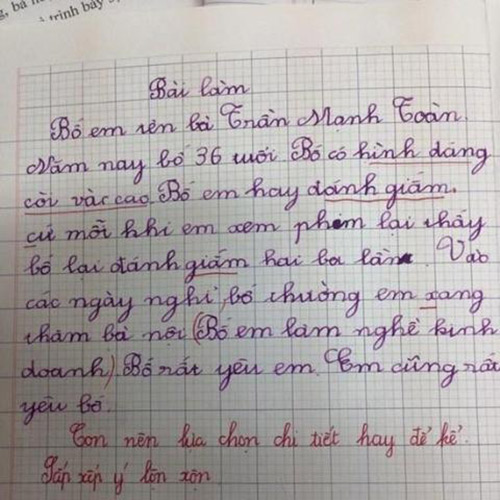 trình bày
Bài làm
Bố em tên là Trần Mạnh Toàn.
Năm nay bố 36 tuổi Bố có hình dáng
còi vàc cao. Bố em hay đánh giắm.
cứ mỗi khi em xem phim lại thấy
bố lại đánh giắm hai ba lần. Vào
các ngày nghỉ, bố thường em xang
thăm bà nội (Bố em làm nghề kinh
doanh). Bố rất yêu em. Em cũng rất
yêu bố.
Con nên lựa chọn chi tiết hay để kể.
Sắp xếp ý lộn xộn